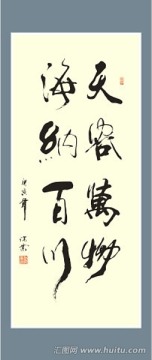 天容萬物
海納百川
汇图网 www.huitu.com